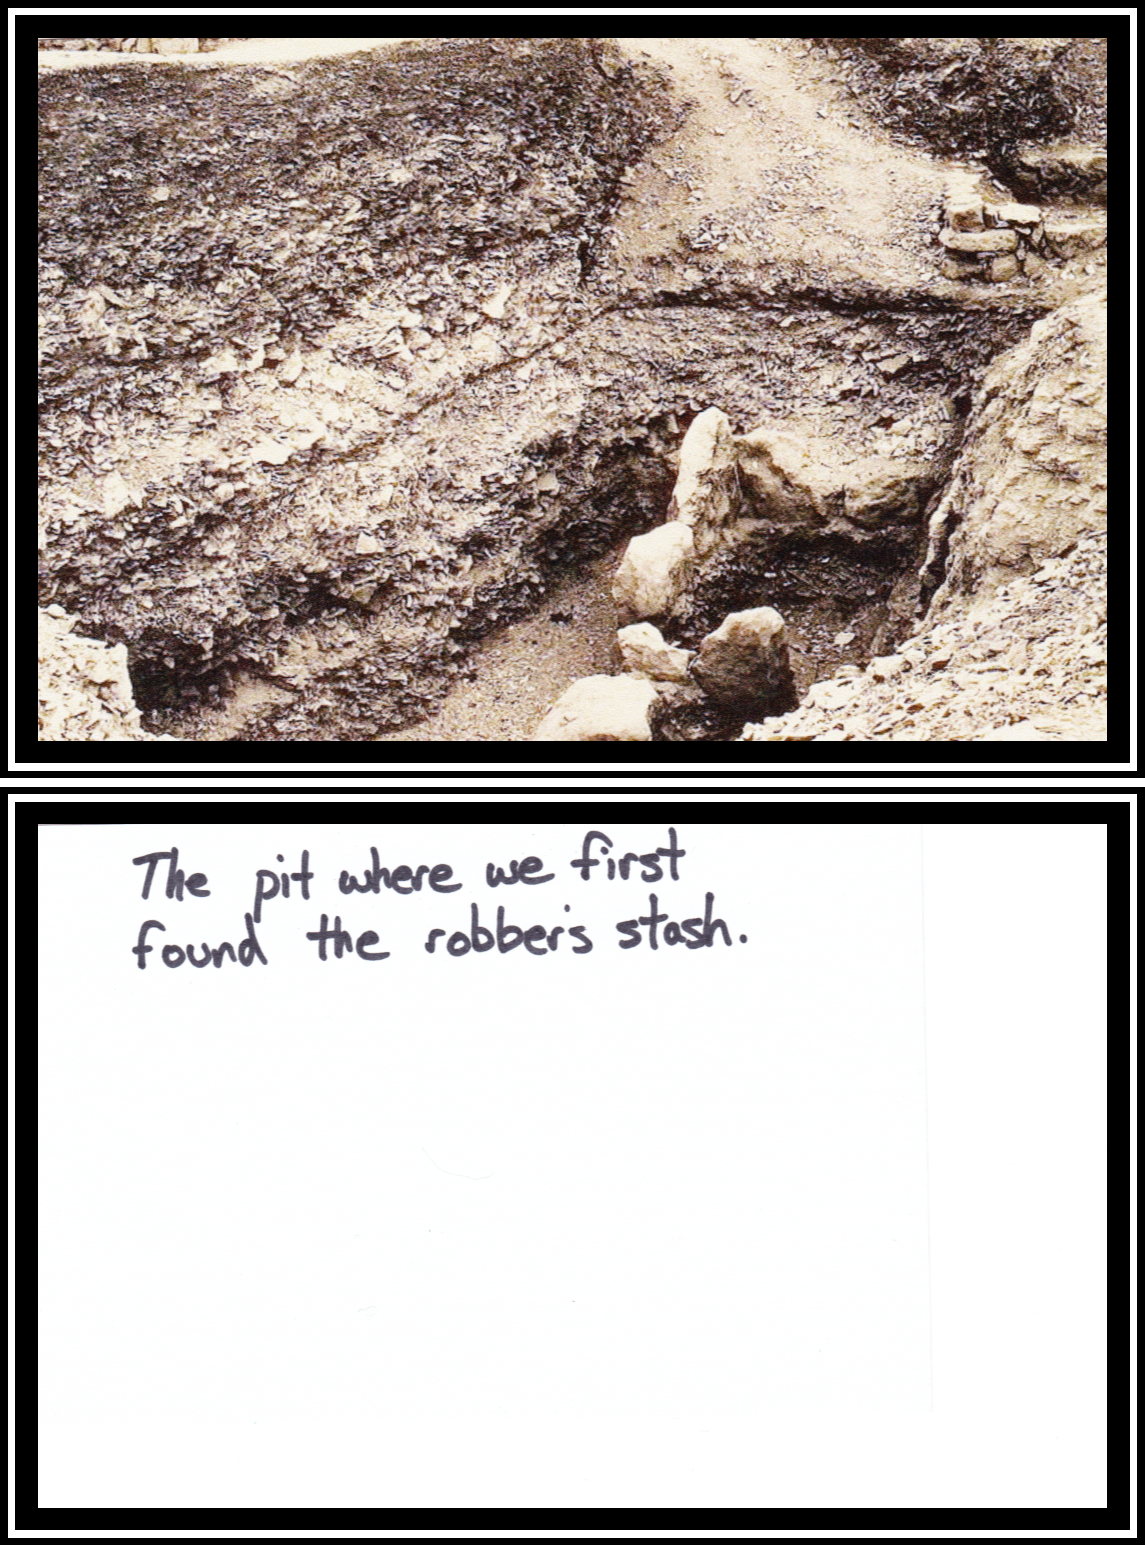 The pit where we first
found the robber's stash.